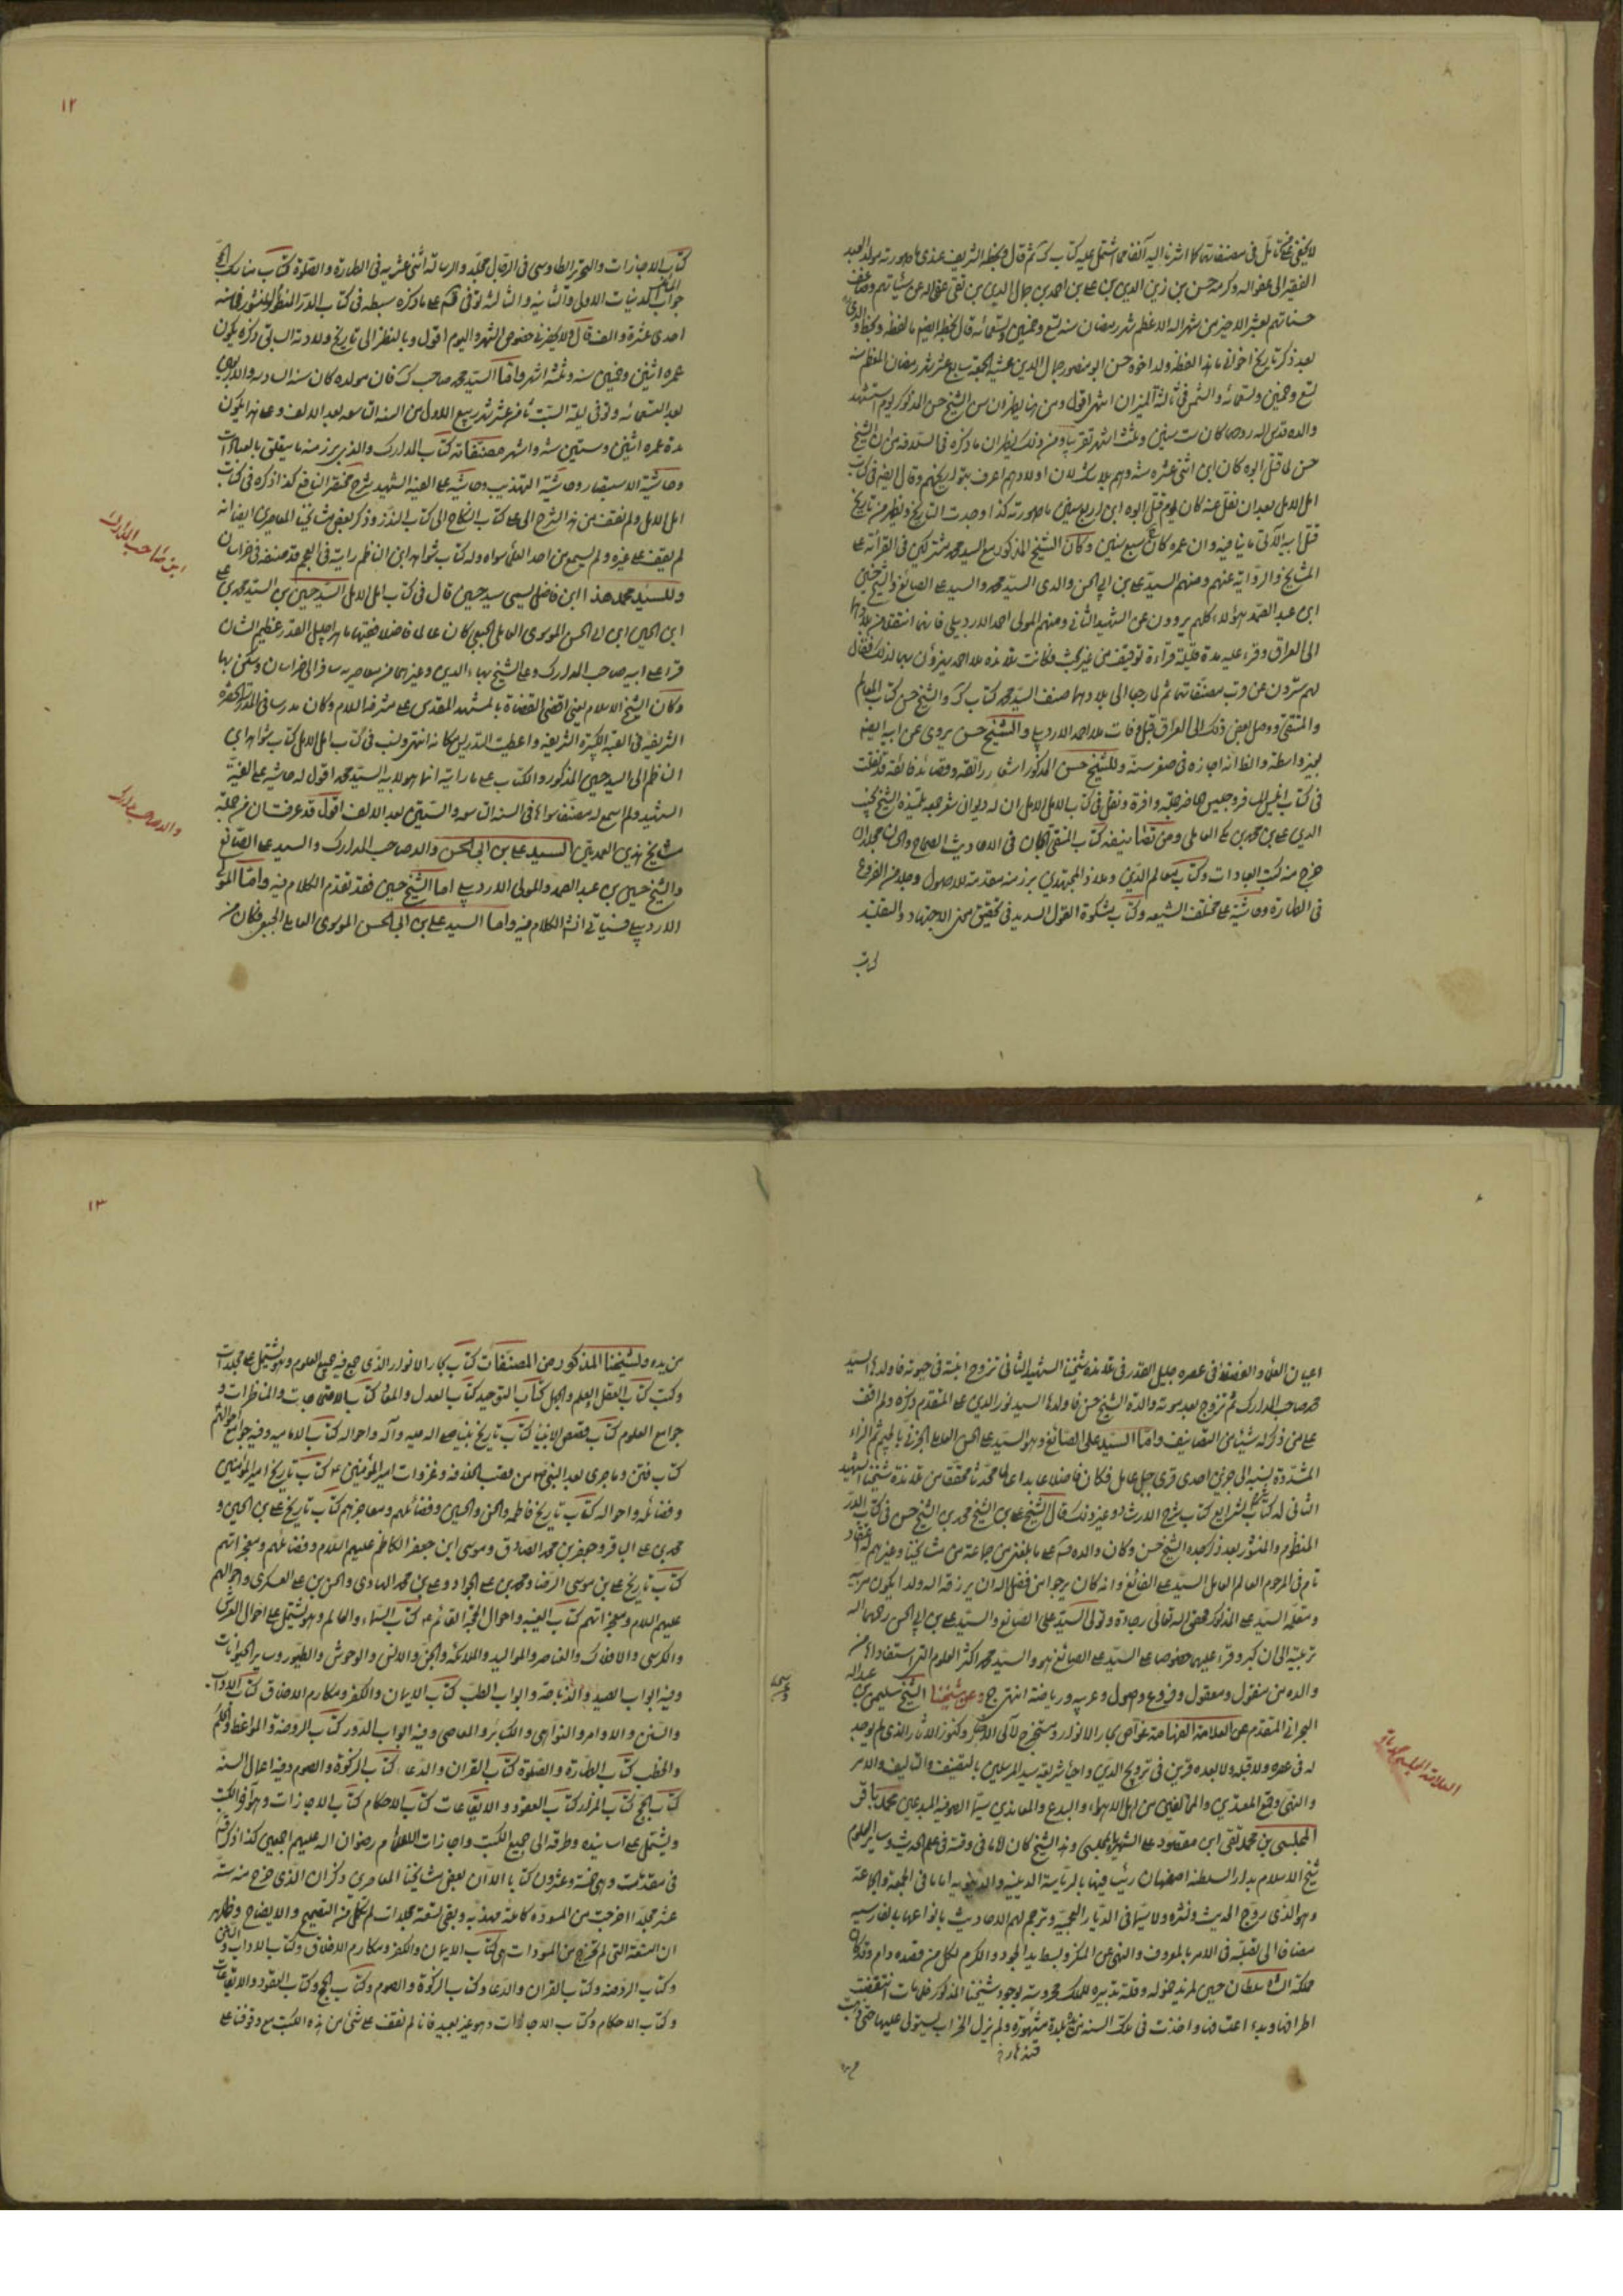 لا يخفى على من تأمل في مصنفاتهما كما اشرنا اليه آنفا مما اشتمل عليه كتاب ك ثم قال وبخطه الشريف عندي ما صورته مولد العبد
الفقير الى عفو الله وكرمه حسن بن زين الدين بن علي بن احمد بن جمال الدين بن تقي عفى الله عن سيئاتهم وضاعف
حسناتهم لعشر الاخير من شهر الله الاعظم شهر رمضان سنه تسع وخمسين وتسعمائه قال بخطه ايضا ما لفظه وبخط والدي
بعد ذكر تاريخ اخواني ما هذا لفظه ولد اخوه حسن ابو منصور جمال الدين عشيه الجمعه سابع عشر شهر رمضان المعظم سنه
تسع وخمسين وتسعمائه والشمس في ثالثة الميزان
والده قدس الله روحهما كان
حسن لما قتل ابوه كان ابن اثنى عشره سنه
امل الامل بعد ان نقل عنه كان يوم قتل ابوه ابن اربع سنين ما صورته كذا وجدت التاريخ
وكان الشيخ المذكور مع السيد محمد شريكين في القرائة على
المشايخ والرواية عنهم ومنهم السيد علي بن ابي الحسن والدى السيد محمد والسيد علي الصائغ والشيخ حسين
ابن عبد الصمد هؤلاء كلهم يروون عن الشهيد الثاني ومنهم المولى احمد الاردبيلي
الى العراق وقرء عليه مدة قليلة قراءة توقيف من غير بحث وكانت تلامذه ملا احمد يهزؤن بهما لذلك فقال
لهم سترون عن قريب مصنفاتهما ثم لما رجعا الى بلادهما صنف السيد محمد كتاب ك والشيخ حسن كتاب المعالم
والمنتقى ووصل بعض ذلك الى العراق قبل وفات ملا احمد الاردبيلي والشيخ حسن يروى عن ابيه ايضا
بغير واسطة والظ انه اجازه في صغر سنه وللشيخ حسن المذكور اشعار رائقه وقصائد فائقة
في كتاب انيس المسافر وجليس الحاضر جملة وافرة ونقل في كتاب امل الامل ان له ديوان شعر جمعه تلميذه الشيخ نجيب
الدين علي بن محمد بن مكي العاملي ومن تصانيفه كتاب المنتقى الجمان في الاحاديث الصحاح والحسان مجلدان
خرج منه كتب العبادات وكتاب معالم الدين وملاذ المجتهدين برز منه مقدمته للاصول وجلد من الفروع
في الطهارة وحاشية على مختلف الشيعه وكتاب مشكوة القول السديد في تحقيق معنى الاجتهاد والتقليد
كتاب
١٢
كتاب الاجازات والتحرير الطاوسي في الرجال مجلد والرساله اثنى عشريه في الطهارة والصلوة كتاب مناسك الحج
جواب المدنيات الاولى والثانيه والثالثه توفي قده على ما ذكره سبطه في كتاب الدر المنظوم والمنثور في سنه
احدى عشرة والف قال ولا يحضرني خصوص الشهر واليوم اقول وبالنظر الى تاريخ ولادته السابق ذكره يكون
عمره اثنين وخمسين سنه وثلثه اشهر واما السيد محمد صاحب ك فان مولده كان سنه السادسه والاربعين
بعد التسعمائه وتوفى ليلة السبت ثامن عشر شهر ربيع الاول من السنه التاسعه بعد الالف وعلى هذا يكون
مدة عمره اثنين وستين سنه واشهر مصنفاته كتاب المدارك والذي برز منه ما يتعلق بالعبادات
وحاشية الاستبصار وحاشية التهذيب وحاشية على الفيه الشهيد شرح مختصر النافع كذا ذكره في كتاب
امل الامل ولم نقف من هذا الشرح الا على كتاب النكاح الى كتاب النذر وذكر بعض مشايخنا المعاصرين ايضا انه
لم يقف على غيره ولم يسمع من احد العلماء سواه وله كتاب شواهد ابن الناظم رايته في العجم قد صنفه في خراسان
ابن صاحب المدارك
وللسيد محمد هذا ابن فاضل يسمى سيد حسين قال في كتاب امل الامل السيد حسين بن السيد محمد بن علي
ابن الحسين ابن ابي الحسن الموسوى العاملي الجبعي كان عالما فاضلا فقيها ماهرا جليل القدر عظيم الشان
قرا على ابيه صاحب المدارك وعلى الشيخ بهاء الدين وغيرهما من معاصريه سافر الى خراسان وسكن بها
وكان شيخ الاسلام يعني اقضى القضاة بالمشهد المقدس على مشرفه السلام وكان مدرسا في الحضرة
الشريفه في القبة الكبيرة الشريفه واعطيت التدريس مكانه انتهى ونسب في كتاب امل الامل كتاب شواهد ابن
الناظم الى السيد حسين المذكور والكتاب على ما رايته انما هو لابيه السيد محمد اقول له حاشيه على الفية
والد صاحب مدارك
الشهيد ولم اسمع له مصنفا سواها في السنه التاسعه والستين بعد الالف اقول قد عرفت ان من جملة
مشايخ هذين العمدتين السيد علي بن ابي الحسن والد صاحب المدارك والسيد علي الصائغ
والشيخ حسين بن عبد الصمد والمولى الاردبيلي اما الشيخ حسين فقد تقدم الكلام فيه واما المولى
الاردبيلي فسياتي انشاء الله الكلام فيه واما السيد علي بن ابي الحسن الموسوى العاملي الجبعي فكان من
اعيان العلماء والفضلاء في عصره جليل القدر في تلامذه شيخنا الشهيد الثاني تزوج ابنته في حيوته فاولدها السيد
محمد صاحب المدارك ثم تزوج بعد موته والدة الشيخ حسن فاولدها السيد نور الدين علي المتقدم ذكره ولم اقف
على من ذكر له شيئا من التصانيف واما السيد علي الصائغ وهو السيد علي بن الحسين العاملي الجزيني بالجيم ثم الزاء
المشددة نسبه الى جزين احدى قرى جبل عامل فكان فاضلا عابدا عالما محدثا محققا من تلامذة شيخنا الشهيد
الثاني له كتاب شرح الشرايع كتاب شرح الارشاد وغير ذلك قال الشيخ علي بن الشيخ محمد بن الشيخ حسن في كتاب الدر
المنظوم والمنثور بعد ذكر جده الشيخ حسن وكان والده قده على ما بلغني من جماعة من مشايخنا وغيرهم له اعتقاد
تام في المرحوم العالم العامل السيد علي الصائغ وانه كان يرجوا من فضل الله ان يرزقه الله ولدا يكون مربيه
ومعلمه السيد علي المذكور فحقق الله تعالى رجاءه وتولى السيد علي الصايغ والسيد علي بن ابي الحسن رحمهما الله
تربيته الى ان كبر وقرا عليهما خصوصا على السيد علي الصائغ هو والسيد محمد اكثر العلوم التي استفاداها من
والده من منقول ومعقول وفروع واصول وعربيه ورياضة انتهى ح وعن شيخنا الشيخ سليمن بن عبد الله
البحراني المتقدم عن العلامة الفهامة غواص بحار الانوار ومستخرج لآلى الاخبار وكنوز الاثار الذي لم يوجد
العلامة المجلسي محمد باقر
له في عصره ولا قبله ولا بعده قرين في ترويج الدين واحياء شريعة سيد المرسلين بالتصنيف والتاليف والامر
والنهى وقمع المعتدين والمخالفين من اهل الاهواء والبدع والمعاندين سيما الصوفيه المبدعين محمد باقر
المجلسي بن محمد تقي ابن مقصود علي الشهير بالمجلسي وهذا الشيخ كان اماما في وقته في علم الحديث وسائر العلوم
شيخ الاسلام بدار السلطنه اصفهان رئيسا فيها بالرياسة الدينيه والدنيويه اماما في الجمعة والجماعة
وهو الذي روج الحديث ونشره ولا سيما في الديار العجميه وترجم لهم الاحاديث بانواعها بالفارسيه
مضافا الى تصلبه في الامر بالمعروف والنهى عن المنكر وبسط يد الجود والكرم لكل من قصده وام وقد كان
مملكة الشاه سلطان حسين لمزيد خموله وقلة تدبيره للملك محروسة بوجود شيخنا المذكور فلما مات انتقضت
اطرافها وبدء اعتسافها واخذت في تلك السنه من يده بلدة قندهار ولم يزل الخراب يستولى عليها حتى ذهبت
١٣
من يده ولشيخنا المذكور من المصنفات كتاب بحار الانوار الذى جمع فيه جميع العلوم وهو يشتمل على مجلدات
وكتب كتاب العقل والعلم والجهل كتاب التوحيد كتاب العدل والمعاد كتاب الاحتجاجات والمناظرات و
جوامع العلوم كتاب قصص الانبياء كتاب تاريخ نبينا صلى الله عليه وآله واحواله كتاب الامامه وفيه جوامع احوالهم
كتاب فتن وما جرى بعد النبي ص من غصب الخلافه وغزوات امير المؤمنين ع كتاب تاريخ امير المؤمنين
وفضائله واحواله كتاب تاريخ فاطمه والحسن والحسين وفضائلهم ومعاجزهم كتاب تاريخ علي بن الحسين و
محمد بن علي الباقر وجعفر بن محمد الصادق وموسى ابن جعفر الكاظم عليهم السلام وفضائلهم ومعجزاتهم
كتاب تاريخ علي بن موسى الرضا ومحمد بن علي الجواد وعلي بن محمد الهادى والحسن بن علي العسكرى واحوالهم
عليهم السلام ومعجزاتهم كتاب الغيبه واحوال الحجة القائم ع كتاب السماء والعالم وهو يشتمل على احوال العرش
والكرسى والافلاك والعناصر والمواليد والملائكه والجن والانس والوحوش والطيور وساير الحيوانات
وفيه ابواب الصيد والذباحة وابواب الطب كتاب الايمان والكفر ومكارم الاخلاق كتاب الاداب
والسنن والاوامر والنواهى والكبائر والمعاصى وفيه ابواب الحدود كتاب الروضة والمواعظ والحكم
والخطب كتاب الطهارة والصلوة كتاب القران والدعاء كتاب الزكوة والصوم وفيه اعمال السنه
كتاب الحج كتاب المزار كتاب العقود والايقاعات كتاب الاحكام كتاب الاجازات وهو آخر الكتب
ويشتمل على اسانيده وطرقه الى جميع الكتب واجازات العلماء رضوان الله عليهم اجمعين كذا ذكره
وهى خمسة وعشرون كتابا الا ان بعض مشايخنا المعاصرين ذكر ان الذى خرج منه ستة
عشر مجلدا اخرجت من المسوده كاملة مهذبه وبقى تسعة مجلدات لم تكمل من التصحيح والايضاح وظاهره
ان التسعة التي لم تخرج من المسودات هى كتاب الايمان والكفر ومكارم الاخلاق وكتاب الاداب والسنن
وكتاب الروضه وكتاب القران والدعاء وكتاب الزكوة والصوم وكتاب الحج وكتاب العقود والايقاعات
وكتاب الاحكام وكتاب الاجازات وهو غير بعيد فانا لم نقف على شئ من هذه الكتب مع وقوفنا على